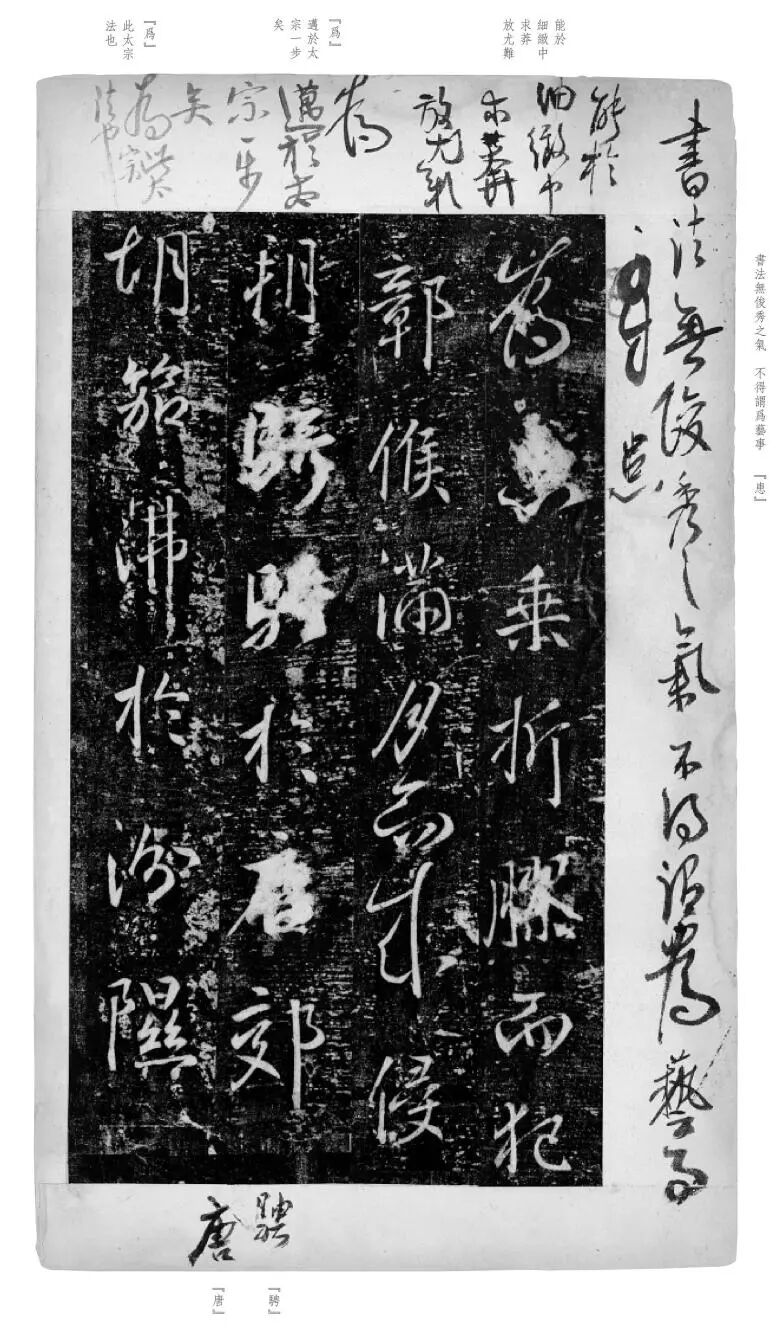 能於
細緻中
求莽
放尤難
『爲』
邁於太
宗一步
矣
『爲』
此太宗
法也
書法無俊秀之氣 不得謂爲藝事 『患』
書法無俊秀之氣不得謂爲藝事
患
能於
細緻中
求莽
放尤難
爲
邁於太
宗一步
矣
爲此太宗
法也
爲患乘折膠而犯
鄣候滿月而成侵
朝騎騁於唐郊
胡笳沸於汾隰
騁
唐
『騁』
『唐』